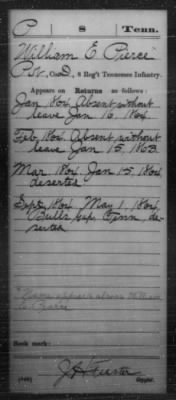 P 8 Tenn.
William E Pierce
Pvt, Co. D, 8 Reg't Tennessee Infantry.
Appears on Returns as follows:
Jan 1864 Absent without
leave Jan 16, 1864
Feb. 1864. Absent without
leave Jan 15, 1863
Mar. 1864 Jan 15, 1864
deserted
Sept 1864 May 1, 1864
Bulls Gap Tenn, de-
serted
Name appears above
Book mark:
Copyist.